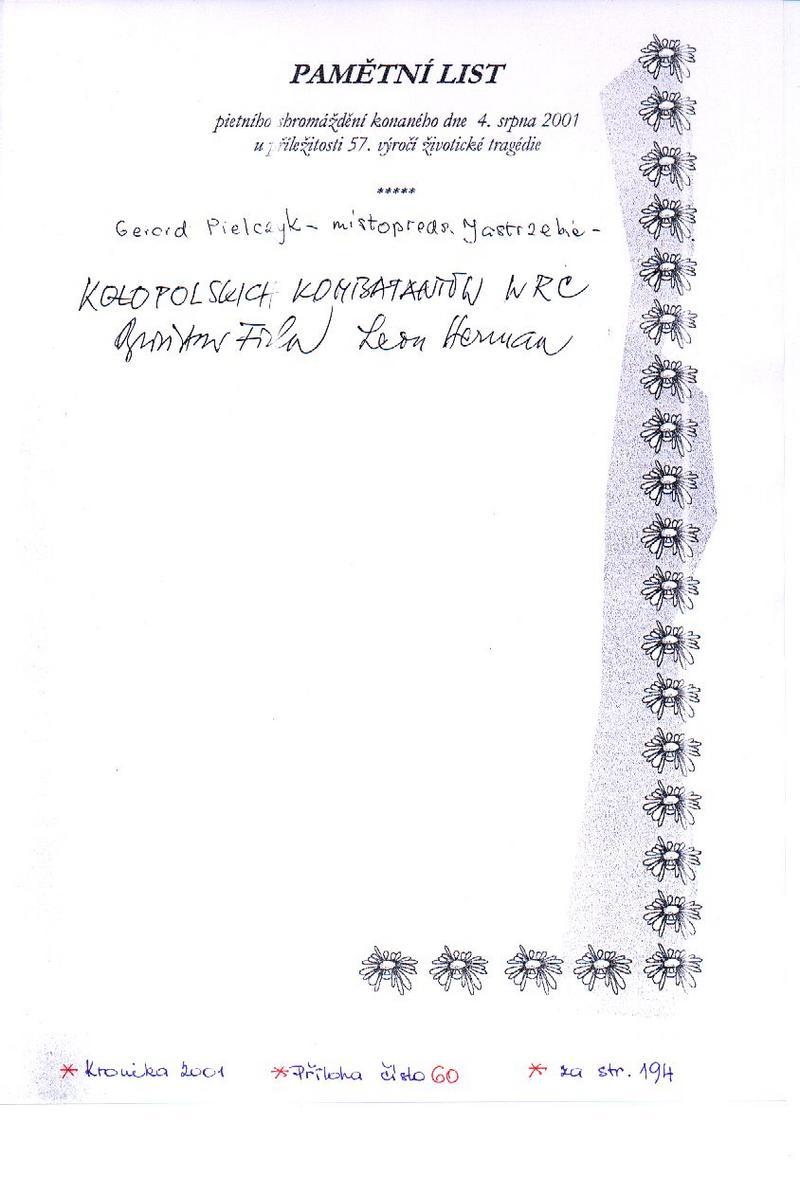 PAMĚTNÍ LIST
pietního shromáždění konaného dne 4. srpna 2001
u příležitosti 57. výročí životické tragédie
*****
Gerord Pielczyk - místopředs. Jastrzebie -
KOŁO POLSKICH KOMBATANTÓW W RC
Leon Herman
* Kronika 2001 * Příloha číslo 60 * za str. 194